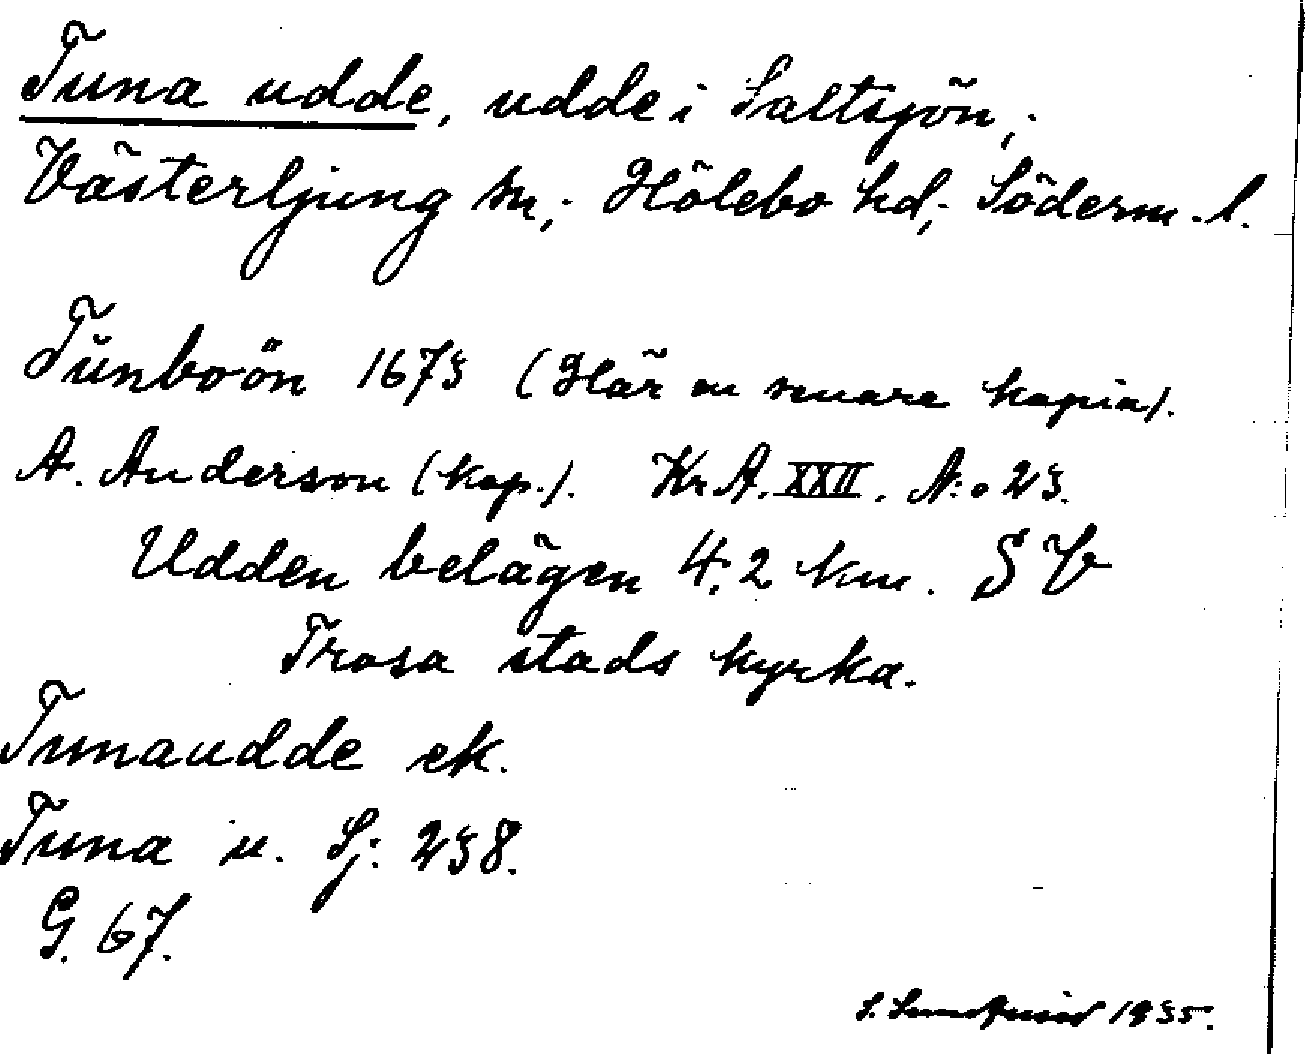 Tuna udde, udde i Saltsjön,;
Västerljung sn,; Hölebo hd,; Söderm. l.
Tŭnboön 1673 (Här en senare kopia).
A. Anderson (kop.). Kr. A. XXII. N:o 23.
Udden belägen 4,2 km. SV
Trosa stads kyrka.
Tunaudde ek.
Tuna u. Sj. 238.
G. 67.
S. Sundquist 1935.